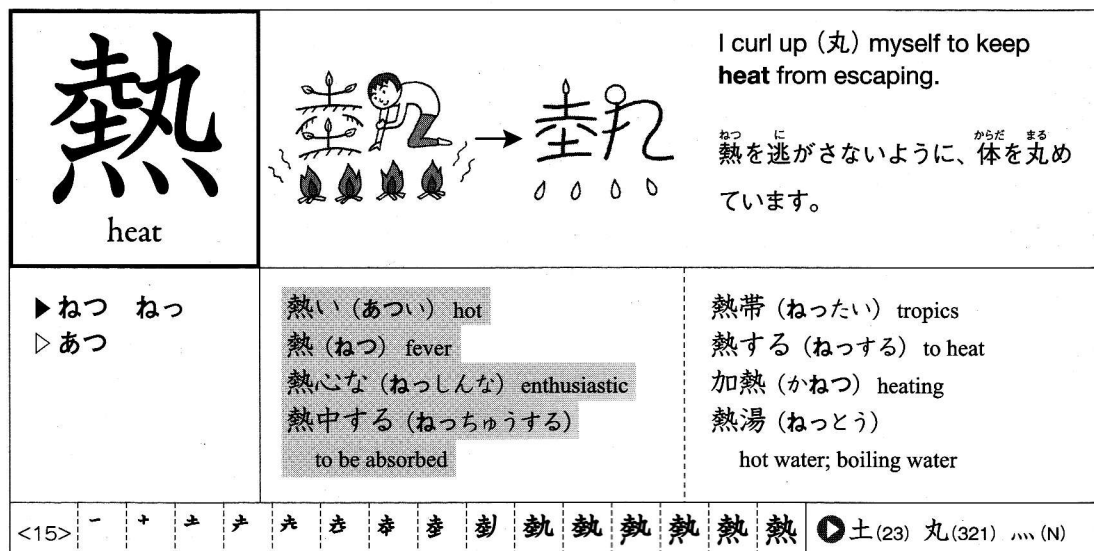 熱
heat
I curl up (丸) myself to keep
heat from escaping.
熱を逃がさないように、体を丸め
ねつ に からだ まる
ています。
▶ねつ ねっ
▷あつ
熱い (あつい) hot
熱 (ねつ) fever
熱心な (ねっしんな) enthusiastic
熱中する (ねっちゅうする)
to be absorbed
熱帯 (ねったい) tropics
熱する (ねっする) to heat
加熱 (かねつ) heating
熱湯 (ねっとう)
hot water; boiling water
<15>
土(23) 丸(321) 灬(N)